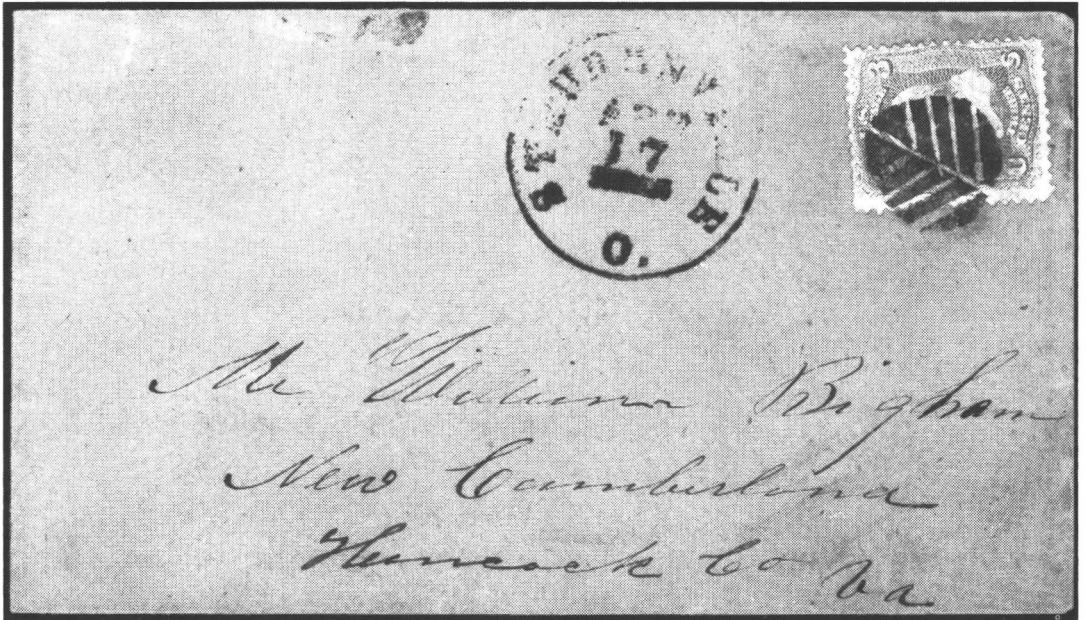 STEUBENVILLE
17
O.
Mr William Bigham
New Cumberland
Hancock Co Va